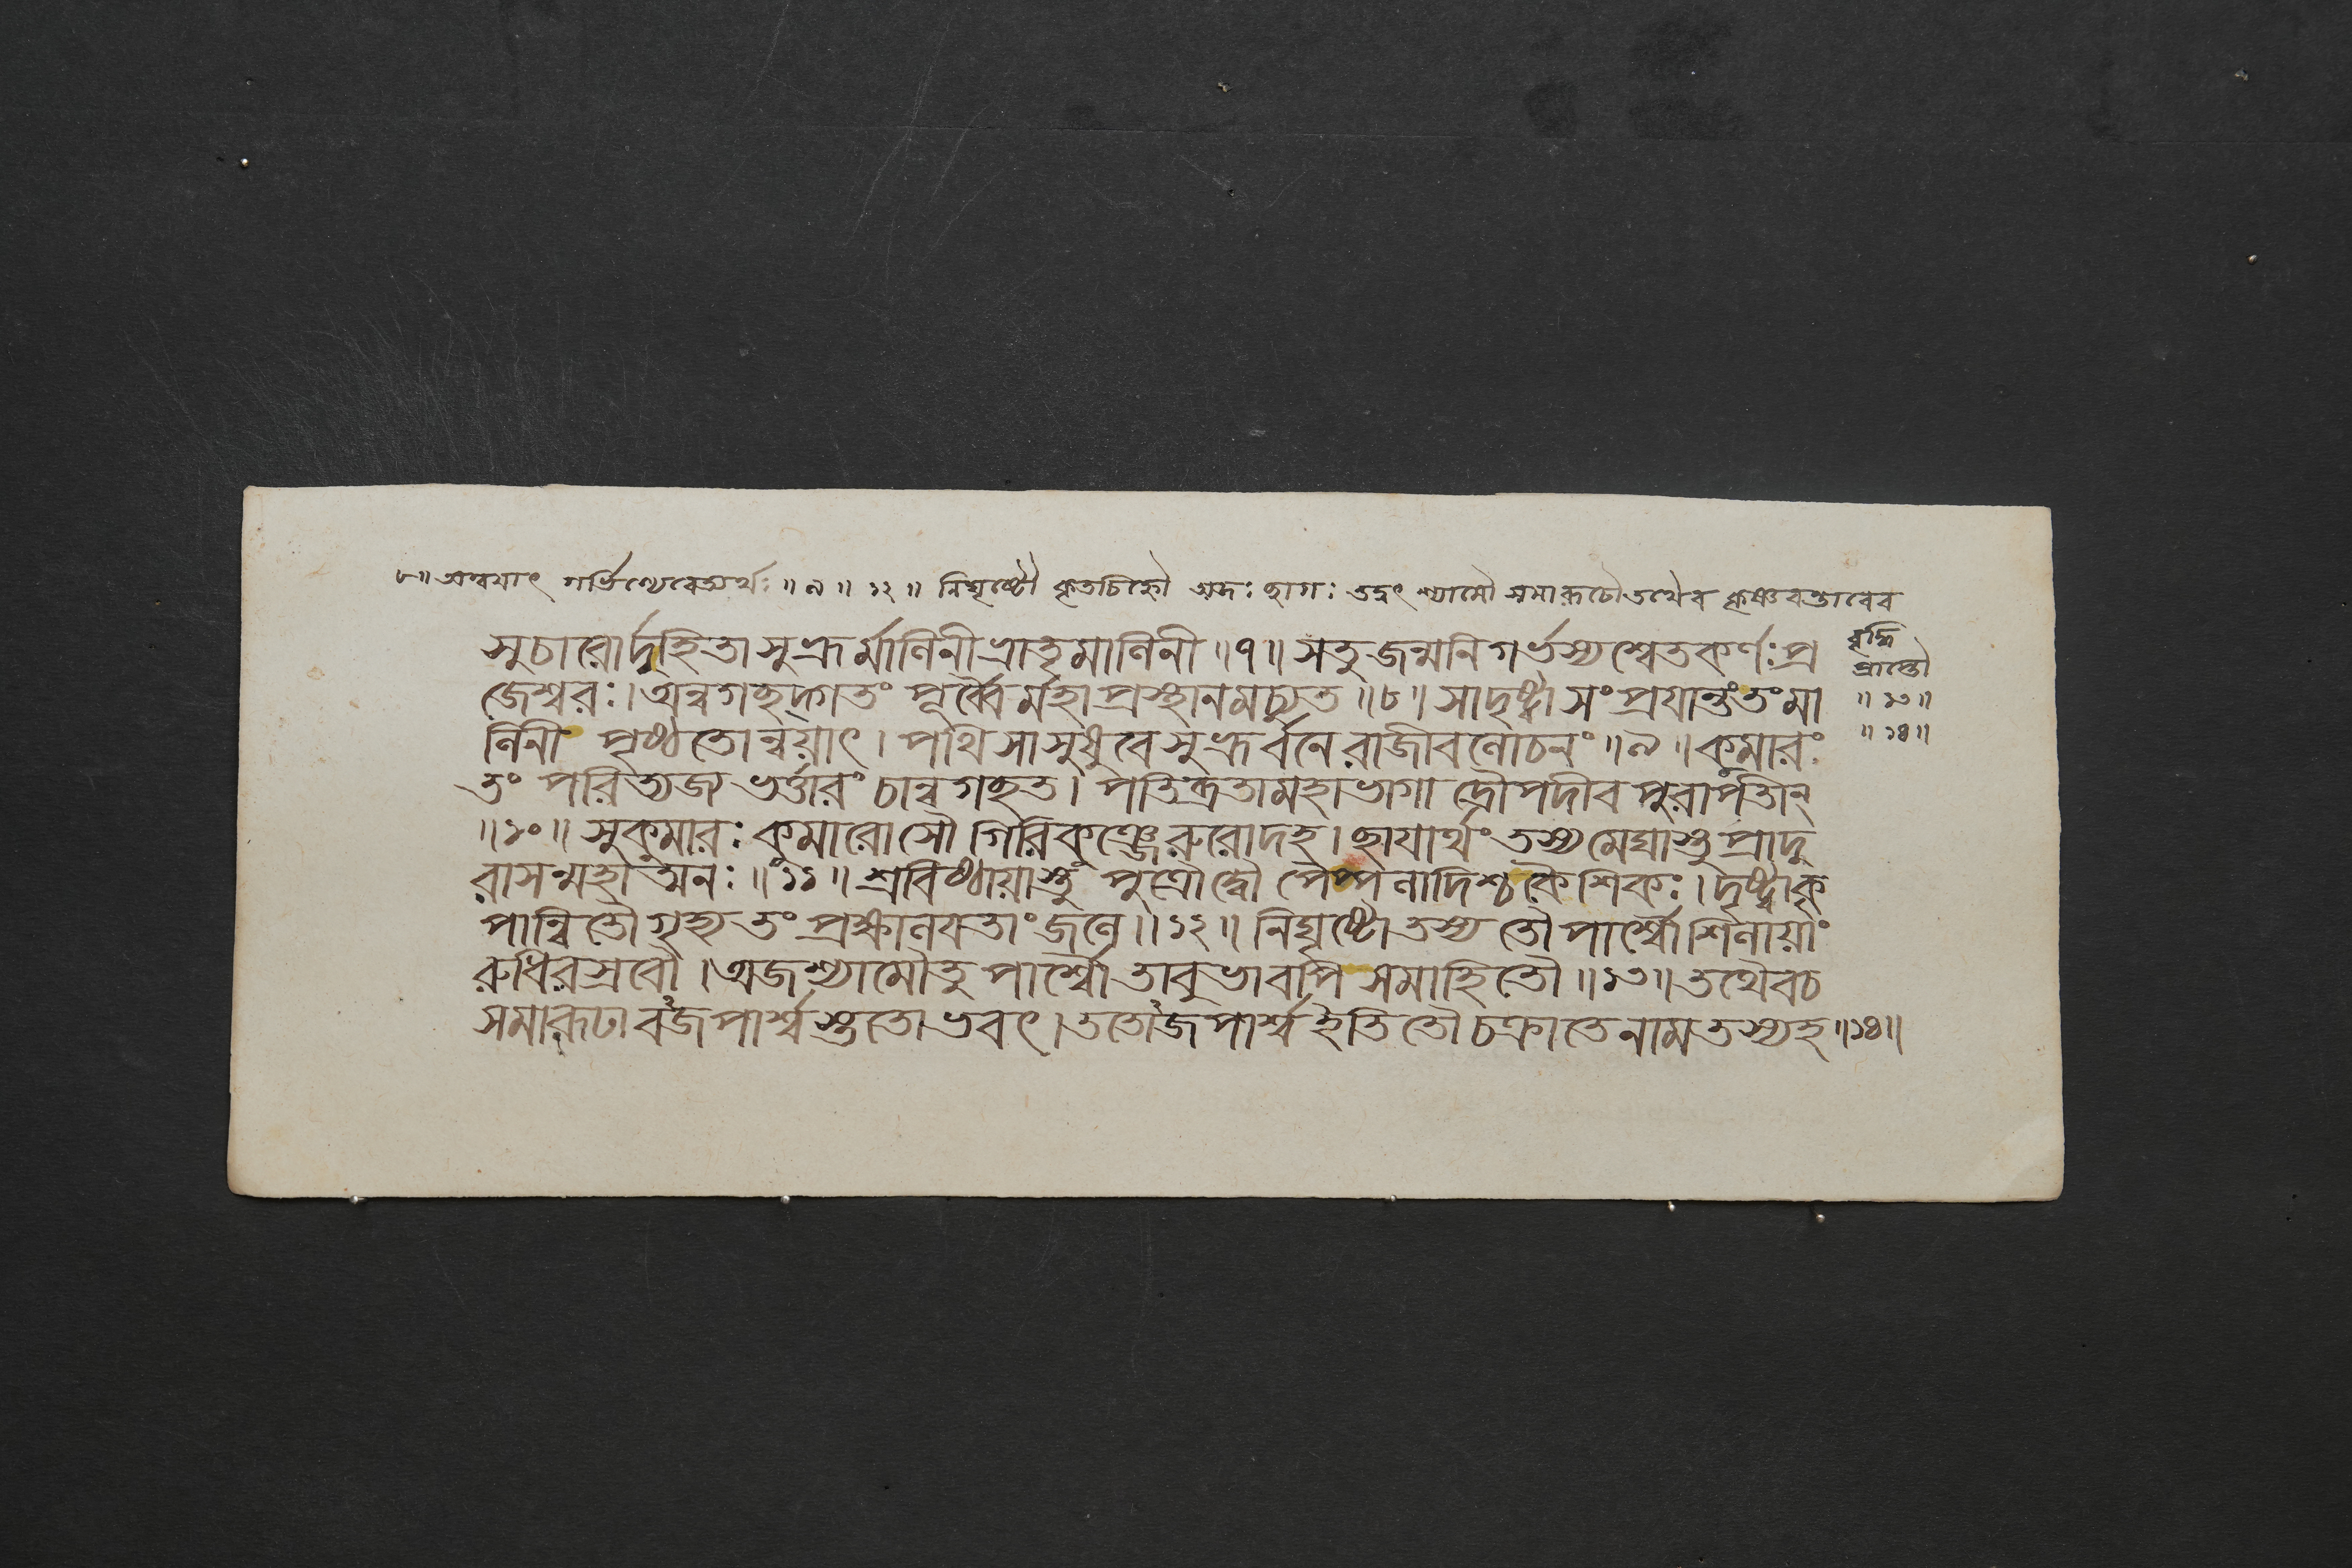 ৮॥ অন্বয়াৎ গর্ভিণ্যেবেত্যর্থঃ ॥ ৯ ॥ ১২ ॥ নিঘৃষ্টৌ কৃতচিহ্নৌ অজঃ ছাগঃ তদ্বৎ শ্যামৌ সমারূঢৌ তথৈব কৃষ্ণবর্ত্তাবেব
বৃদ্ধিং
প্রাপ্তৌ
॥ ১৩ ॥
॥ ১৪ ॥
সুচারোর্দুহিতা সুভ্রূর্মানিনী ভ্রাতৃমানিনী ॥ ৭ ॥ স তু জন্মনি গর্ভস্য শ্বেতকর্ণঃ প্র
জেশ্বরঃ । অন্বগচ্ছদ্গতং পূর্ব্বৈর্মহাপ্রস্থানমচ্যুত ॥ ৮ ॥ সা দৃষ্ট্বা সংপ্রয়ান্তং তং মা
নিনী পৃষ্ঠতোন্বয়াৎ । পথি সা সুষুবে সুভ্রূর্বনে রাজীবলোচনং ॥ ৯ ॥ কুমারং
তং পরিত্যজ্য ভর্ত্তারং চান্বগচ্ছত । পতিব্রতা মহাভাগা দ্রৌপদীব পুরা পতীন্
॥ ১০ ॥ সুকুমারঃ কুমারোসৌ গিরিকুঞ্জে রুরোদ হ । ছায়ার্থং তস্য মেঘাস্তু প্রাদু
রাসন্মহাত্মনঃ ॥ ১১ ॥ শ্রবিষ্ঠায়াস্তু পুত্রৌ দ্বৌ পৈপ্পলাদিশ্চ কৈশিকঃ । দৃষ্ট্বা কৃ
পান্বিতৌ গৃহ্য তং প্রক্ষালয়তাং জলে ॥ ১২ ॥ নিঘৃষ্টৌ তস্য তৌ পার্শ্বৌ শিলায়াং
রুধিরস্রবৌ । অজশ্যামৌ তু পার্শ্বৌ তাবুভাবপি সমাহিতৌ ॥ ১৩ ॥ তথৈব চ
সমারূঢাবজপার্শ্বস্ততোভবৎ । ততোজপার্শ্ব ইতি তৌ চক্রাতে নাম তস্য হ ॥ ১৪ ॥